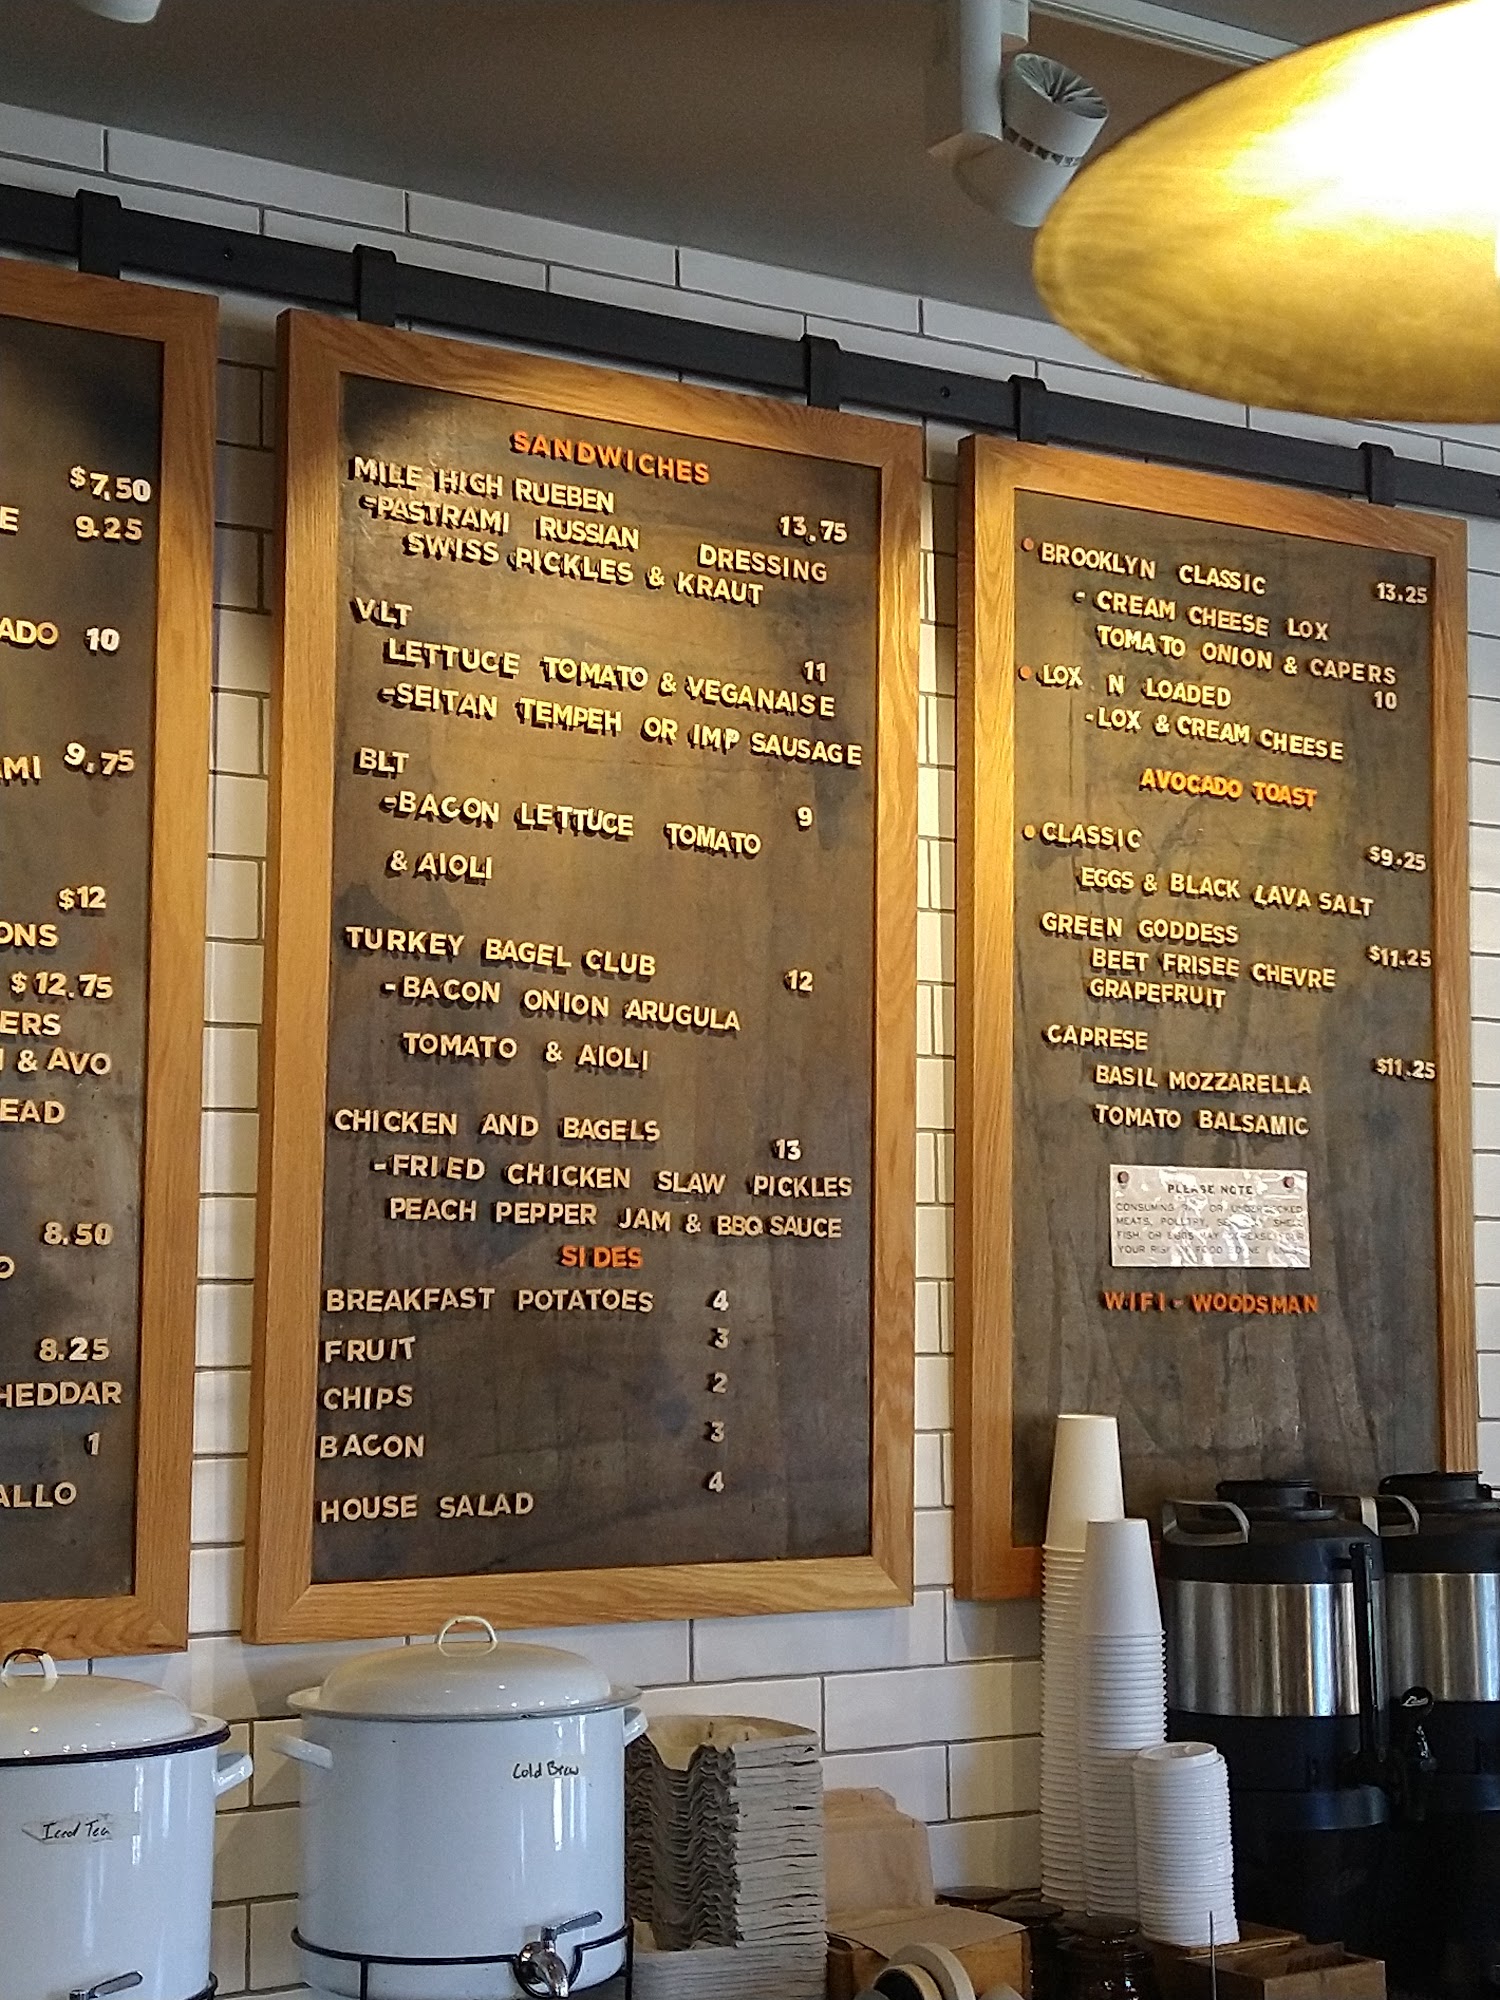 $7.50
E 9.25
ADO 10
MI 9.75
$12
ONS
$12.75
ERS
& AVO
EAD
8.50
O
8.25
HEDDAR
1
ALLO
SANDWICHES
MILE HIGH RUEBEN 13.75
-PASTRAMI RUSSIAN DRESSING
SWISS PICKLES & KRAUT
VLT 11
LETTUCE TOMATO & VEGANAISE
-SEITAN TEMPEH OR IMP SAUSAGE
BLT 9
-BACON LETTUCE TOMATO
& AIOLI
TURKEY BAGEL CLUB 12
-BACON ONION ARUGULA
TOMATO & AIOLI
CHICKEN AND BAGELS 13
-FRIED CHICKEN SLAW PICKLES
PEACH PEPPER JAM & BBQ SAUCE
SIDES
BREAKFAST POTATOES 4
FRUIT 3
CHIPS 2
BACON 3
HOUSE SALAD 4
• BROOKLYN CLASSIC 13.25
- CREAM CHEESE LOX
TOMATO ONION & CAPERS
• LOX N LOADED 10
-LOX & CREAM CHEESE
AVOCADO TOAST
• CLASSIC $9.25
EGGS & BLACK LAVA SALT
GREEN GODDESS $11.25
BEET FRISEE CHEVRE
GRAPEFRUIT
CAPRESE $11.25
BASIL MOZZARELLA
TOMATO BALSAMIC
PLEASE NOTE
CONSUMING OR
MEATS, POULTRY,
FISH, OR EGGS MAY
YOUR RISK FOOD
WIFI - WOODSMAN
Iced Tea
Cold Brew